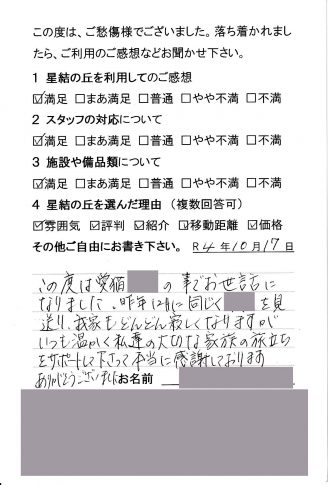 この度は、ご愁傷様でございました。落ち着かれまし
たら、ご利用のご感想などお聞かせ下さい。
1 星結の丘を利用してのご感想
☑満足 □まあ満足 □普通 □やや不満 □不満
2 スタッフの対応について
☑満足 □まあ満足 □普通 □やや不満 □不満
3 施設や備品類について
☑満足 □まあ満足 □普通 □やや不満 □不満
4 星結の丘を選んだ理由（複数回答可）
☑雰囲気 ☑評判 ☑紹介 ☑移動距離 ☑価格
その他ご自由にお書き下さい。 R4年10月17日
この度は愛猫 の事でお世話に
なりました。昨年12月に同じく を見
送り、我家もどんどん寂しくなりますが
いつも温かく私達の大切な家族の旅立ち
をサポートして下さって本当に感謝しております
ありがとうございました
お名前